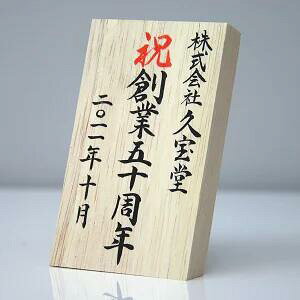 株式会社久宝堂
祝創業五十周年
二〇一一年十月